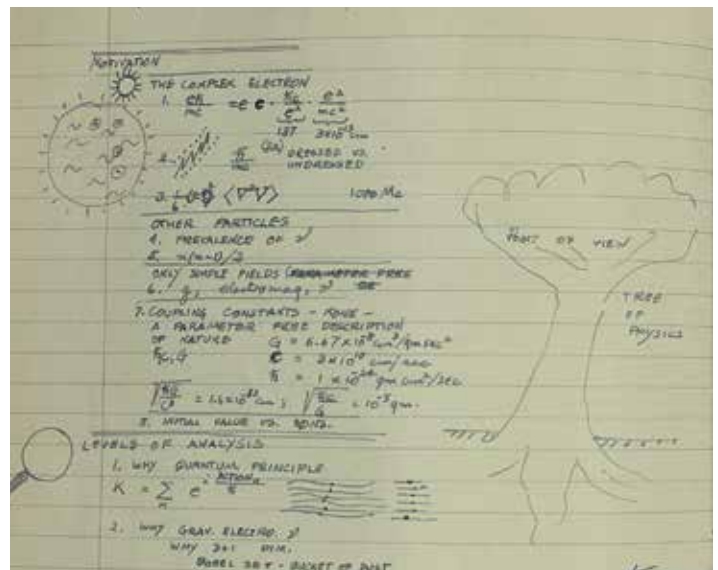 MOTIVATION
THE COMPLEX ELECTRON
1. eħ/mc = e · ħc/e² · e²/mc²
137
2. ħ/mc DRESSED VS.
UNDRESSED
3. ⟨∇²V⟩
OTHER PARTICLES
4. PREVALENCE OF ν
5. n(n-1)/2
ONLY SIMPLE FIELDS (PARAMETER FREE
6. g, electromag, ν OR
7. COUPLING CONSTANTS - NONE -
A PARAMETER FREE DESCRIPTION
OF NATURE G = 6.67×10⁻⁸ cm³/gm sec²
ħ, c, G c = 3×10¹⁰ cm/sec
ħ = 1×10⁻²⁷ gm cm²/sec
√ħG/c³ = 1.6×10⁻³³ cm, √ħc/G = 10⁻⁵ gm.
8. INITIAL VALUE VS.
POINT OF VIEW
TREE
OF
PHYSICS
LEVELS OF ANALYSIS
1. WHY QUANTUM PRINCIPLE
K = Σ e
ACTION
2. WHY GRAV. ELECTRO. ν
WHY 3+1 DIM.
BOREL SET - BUCKET OF DUST